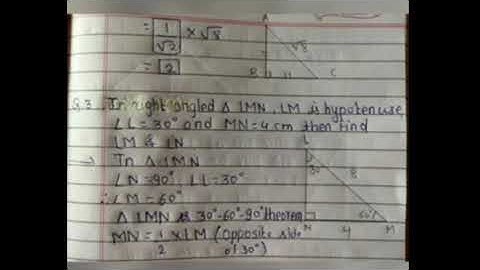 = 1/√2 × √8
= 2
A
√8
B
C
Q.3 In right angled Δ LMN, LM is hypotenuse
∠L = 30° and MN = 4 cm then find
LM & LN
→ In Δ LMN
∠N = 90°, ∠L = 30°
∴ ∠M = 60°
Δ LMN is 30°-60°-90° theorem
MN = 1/2 × LM (opposite side
of 30°)
L
30°
8
60°
N
M